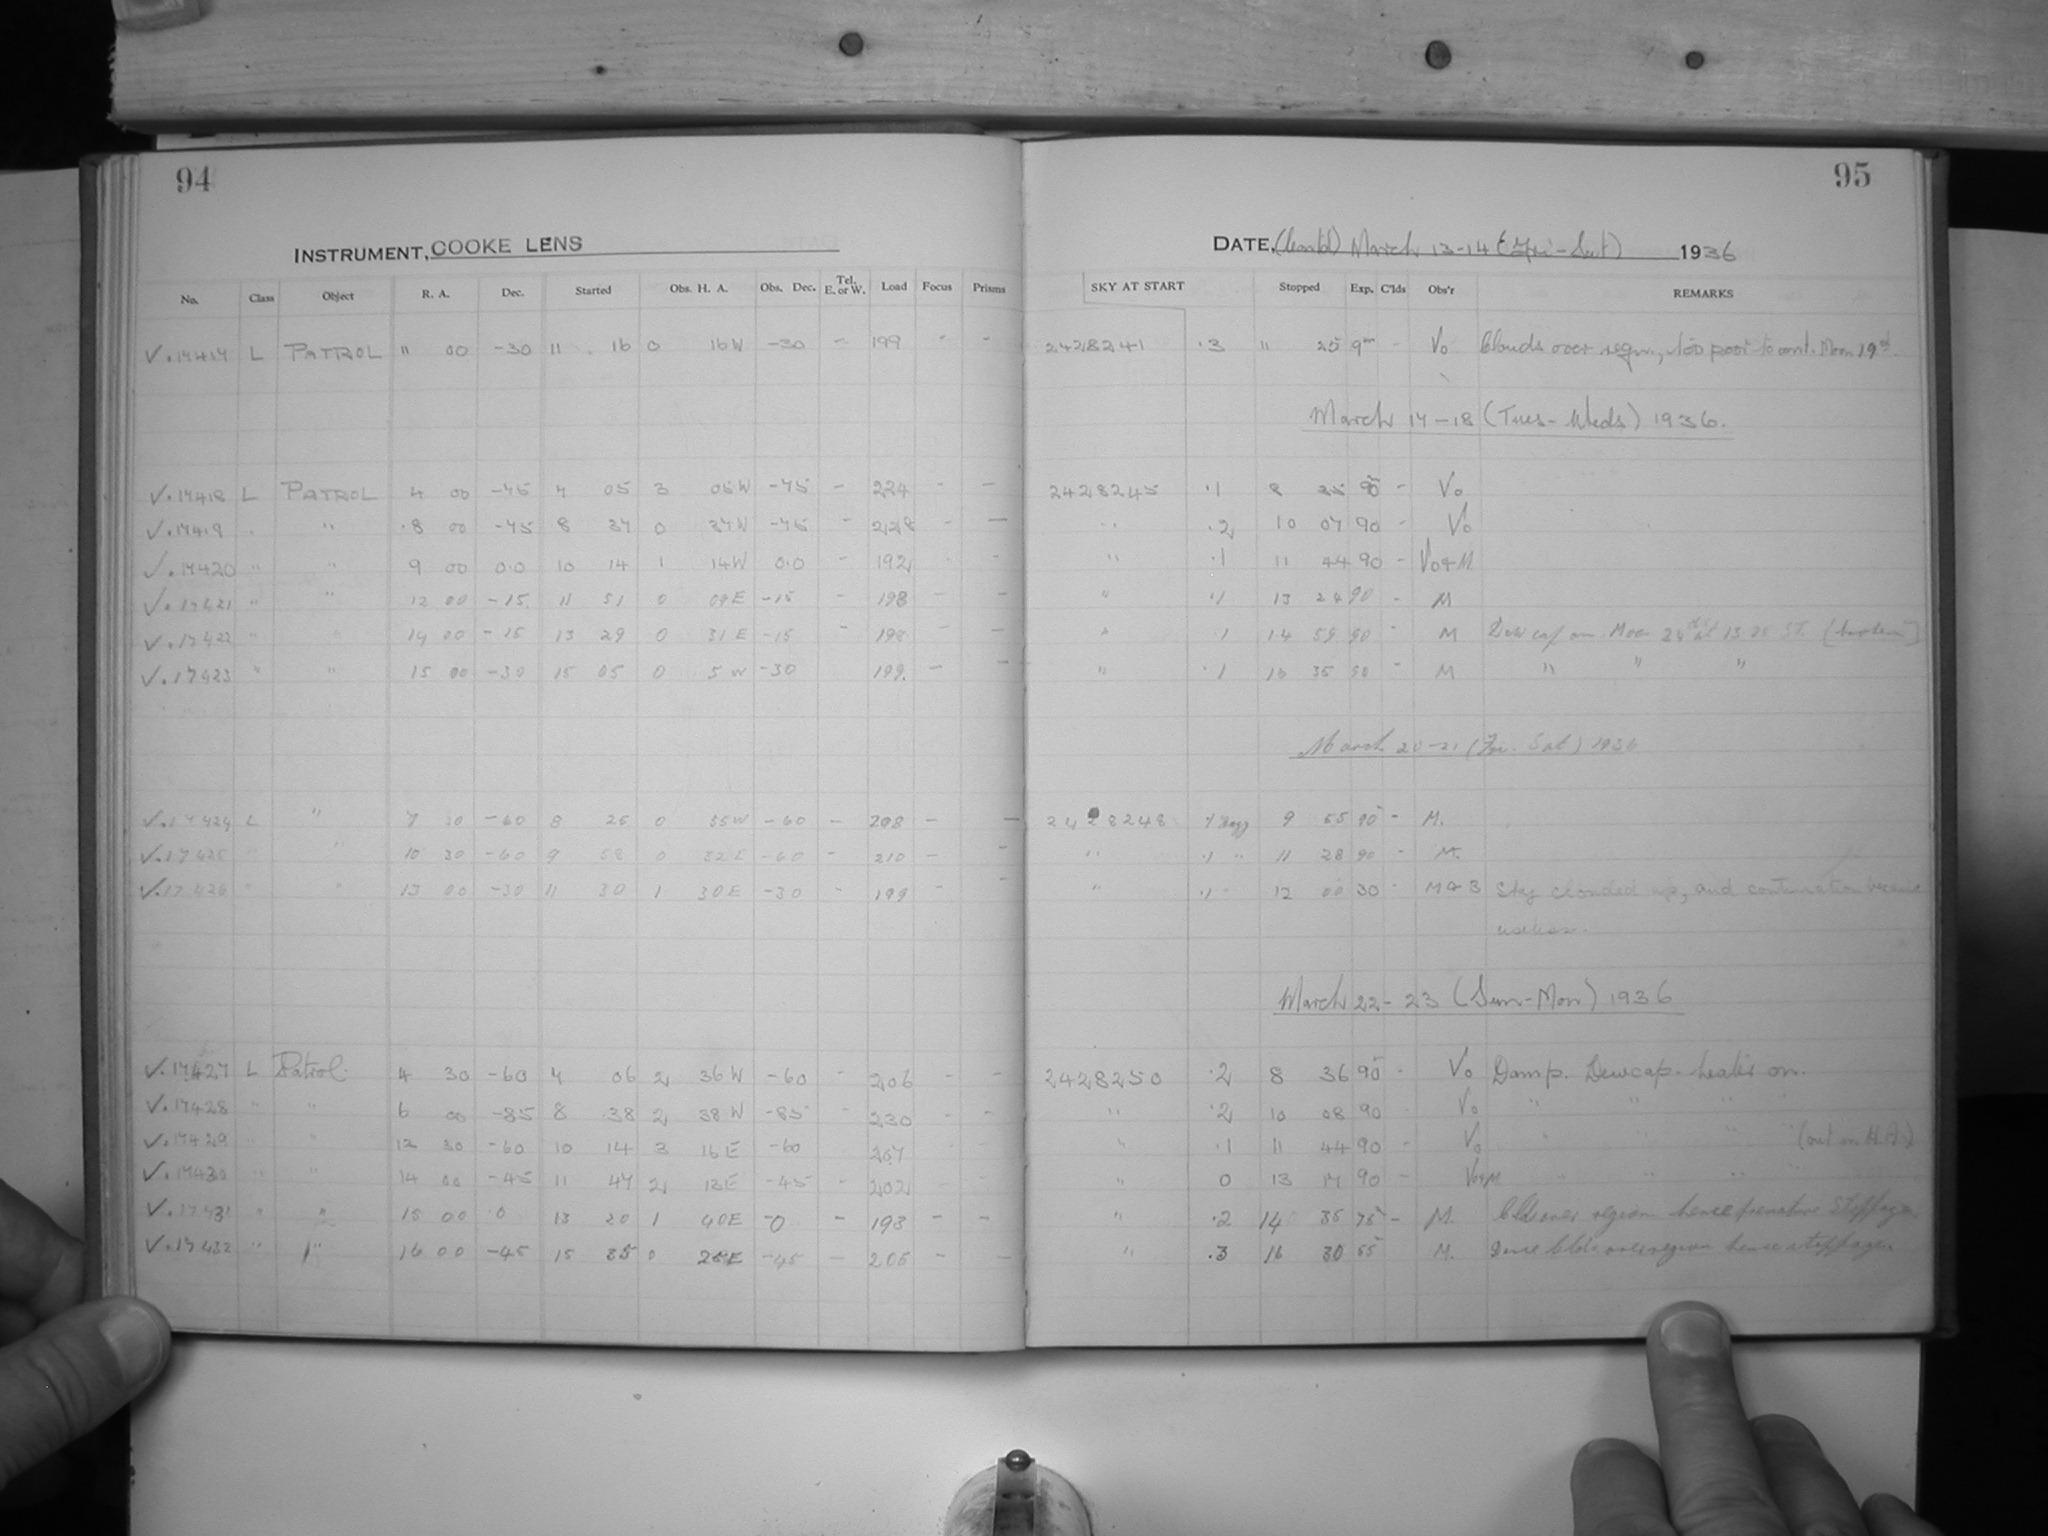 94
95
INSTRUMENT, COOKE LENS
DATE, (Contd) March 13-14 (Fri-Sat) 1936
No. Class Object R. A. Dec. Started Obs. H. A. Obs. Dec. Tel. E. or W. Load Focus Prisms SKY AT START Stopped Exp. C'lds Obs'r REMARKS
V.17417 L PATROL " 00 -30 11 16 0 16W -30 - 199 - - 2428241 .3 " 25 9m - Vo Clouds over region, too poor to cont. Moon 19
March 17-18 (Tues-Weds) 1936.
V.17418 L PATROL 4 00 -75 7 05 3 05W -75 - 224 - - 2428245 .1 8 35 90 - Vo
V.17419 " 8 00 -75 8 37 0 37W -75 - 228 - - " .2 10 07 90 - Vo
V.17420 " " 9 00 0.0 10 14 1 14W 0.0 - 192 - " .1 11 44 90 - Vo+M
V.17421 " " 12 00 -15 11 51 0 09E -15 - 198 " .1 13 24 90 - M
V.17422 " " 14 00 -15 13 29 0 31E -15 - 198 " .1 14 59 90 - M Dew cap on. Moon
V.17423 " " 15 00 -30 15 05 0 5W -30 199 - - " .1 16 35 90 - M " " "
March 20-21 (Fri. Sat) 1936
V.17424 L " 7 30 -60 8 25 0 55W -60 - 208 - - 2428248 .1 Hazy 9 55 90 - M.
V.17425 " " 10 30 -60 9 58 0 32E -60 - 210 - - " .1 " 11 28 90 - M.
V.17426 " " 13 00 -30 11 30 1 30E -30 - 199 - - " .1 12 00 30 - M & B Sky clouded up, and continuation became
useless.
March 22-23 (Sun-Mon) 1936
V.17427 L Patrol 4 30 -60 7 06 2 36W -60 - 206 - - 2428250 .2 8 36 90 - Vo Damp. Dewcap-heater on.
V.17428 " " 6 00 -85 8 38 2 38W -85 - 230 - - " .2 10 08 90 Vo " " "
V.17429 " " 12 30 -60 10 14 3 16E -60 207 " .1 11 44 90 - Vo " " " (out in H.A.)
V.17430 " " 14 00 -45 11 47 2 13E -45 - 202 " 0 13 17 90 - Vo+M " " "
V.17431 " " 15 00 0 13 20 1 40E -0 - 198 - - " .2 14 35 75 - M. Clds over region hence premature stoppage
V.17432 " " 16 00 -45 15 35 0 25E -45 - 205 - - " .3 16 30 55 M. Dense Clds over region hence stoppage.